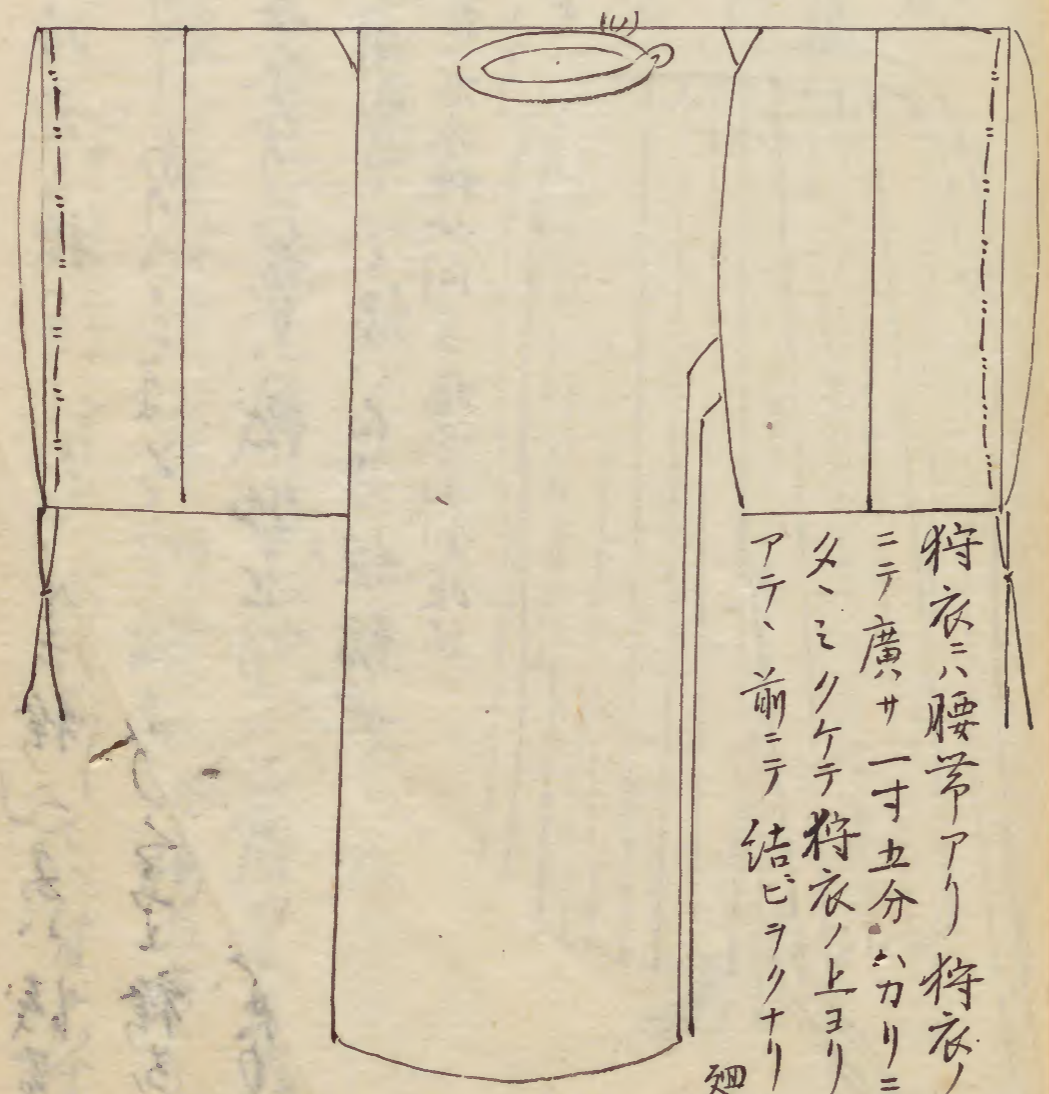 狩衣ニハ腰帯アリ狩衣ノ
ニテ廣サ一寸五分バカリニ
タヽミクケテ狩衣ノ上ヨリ
アテヽ前ニテ結ビヲクナリ
(い)